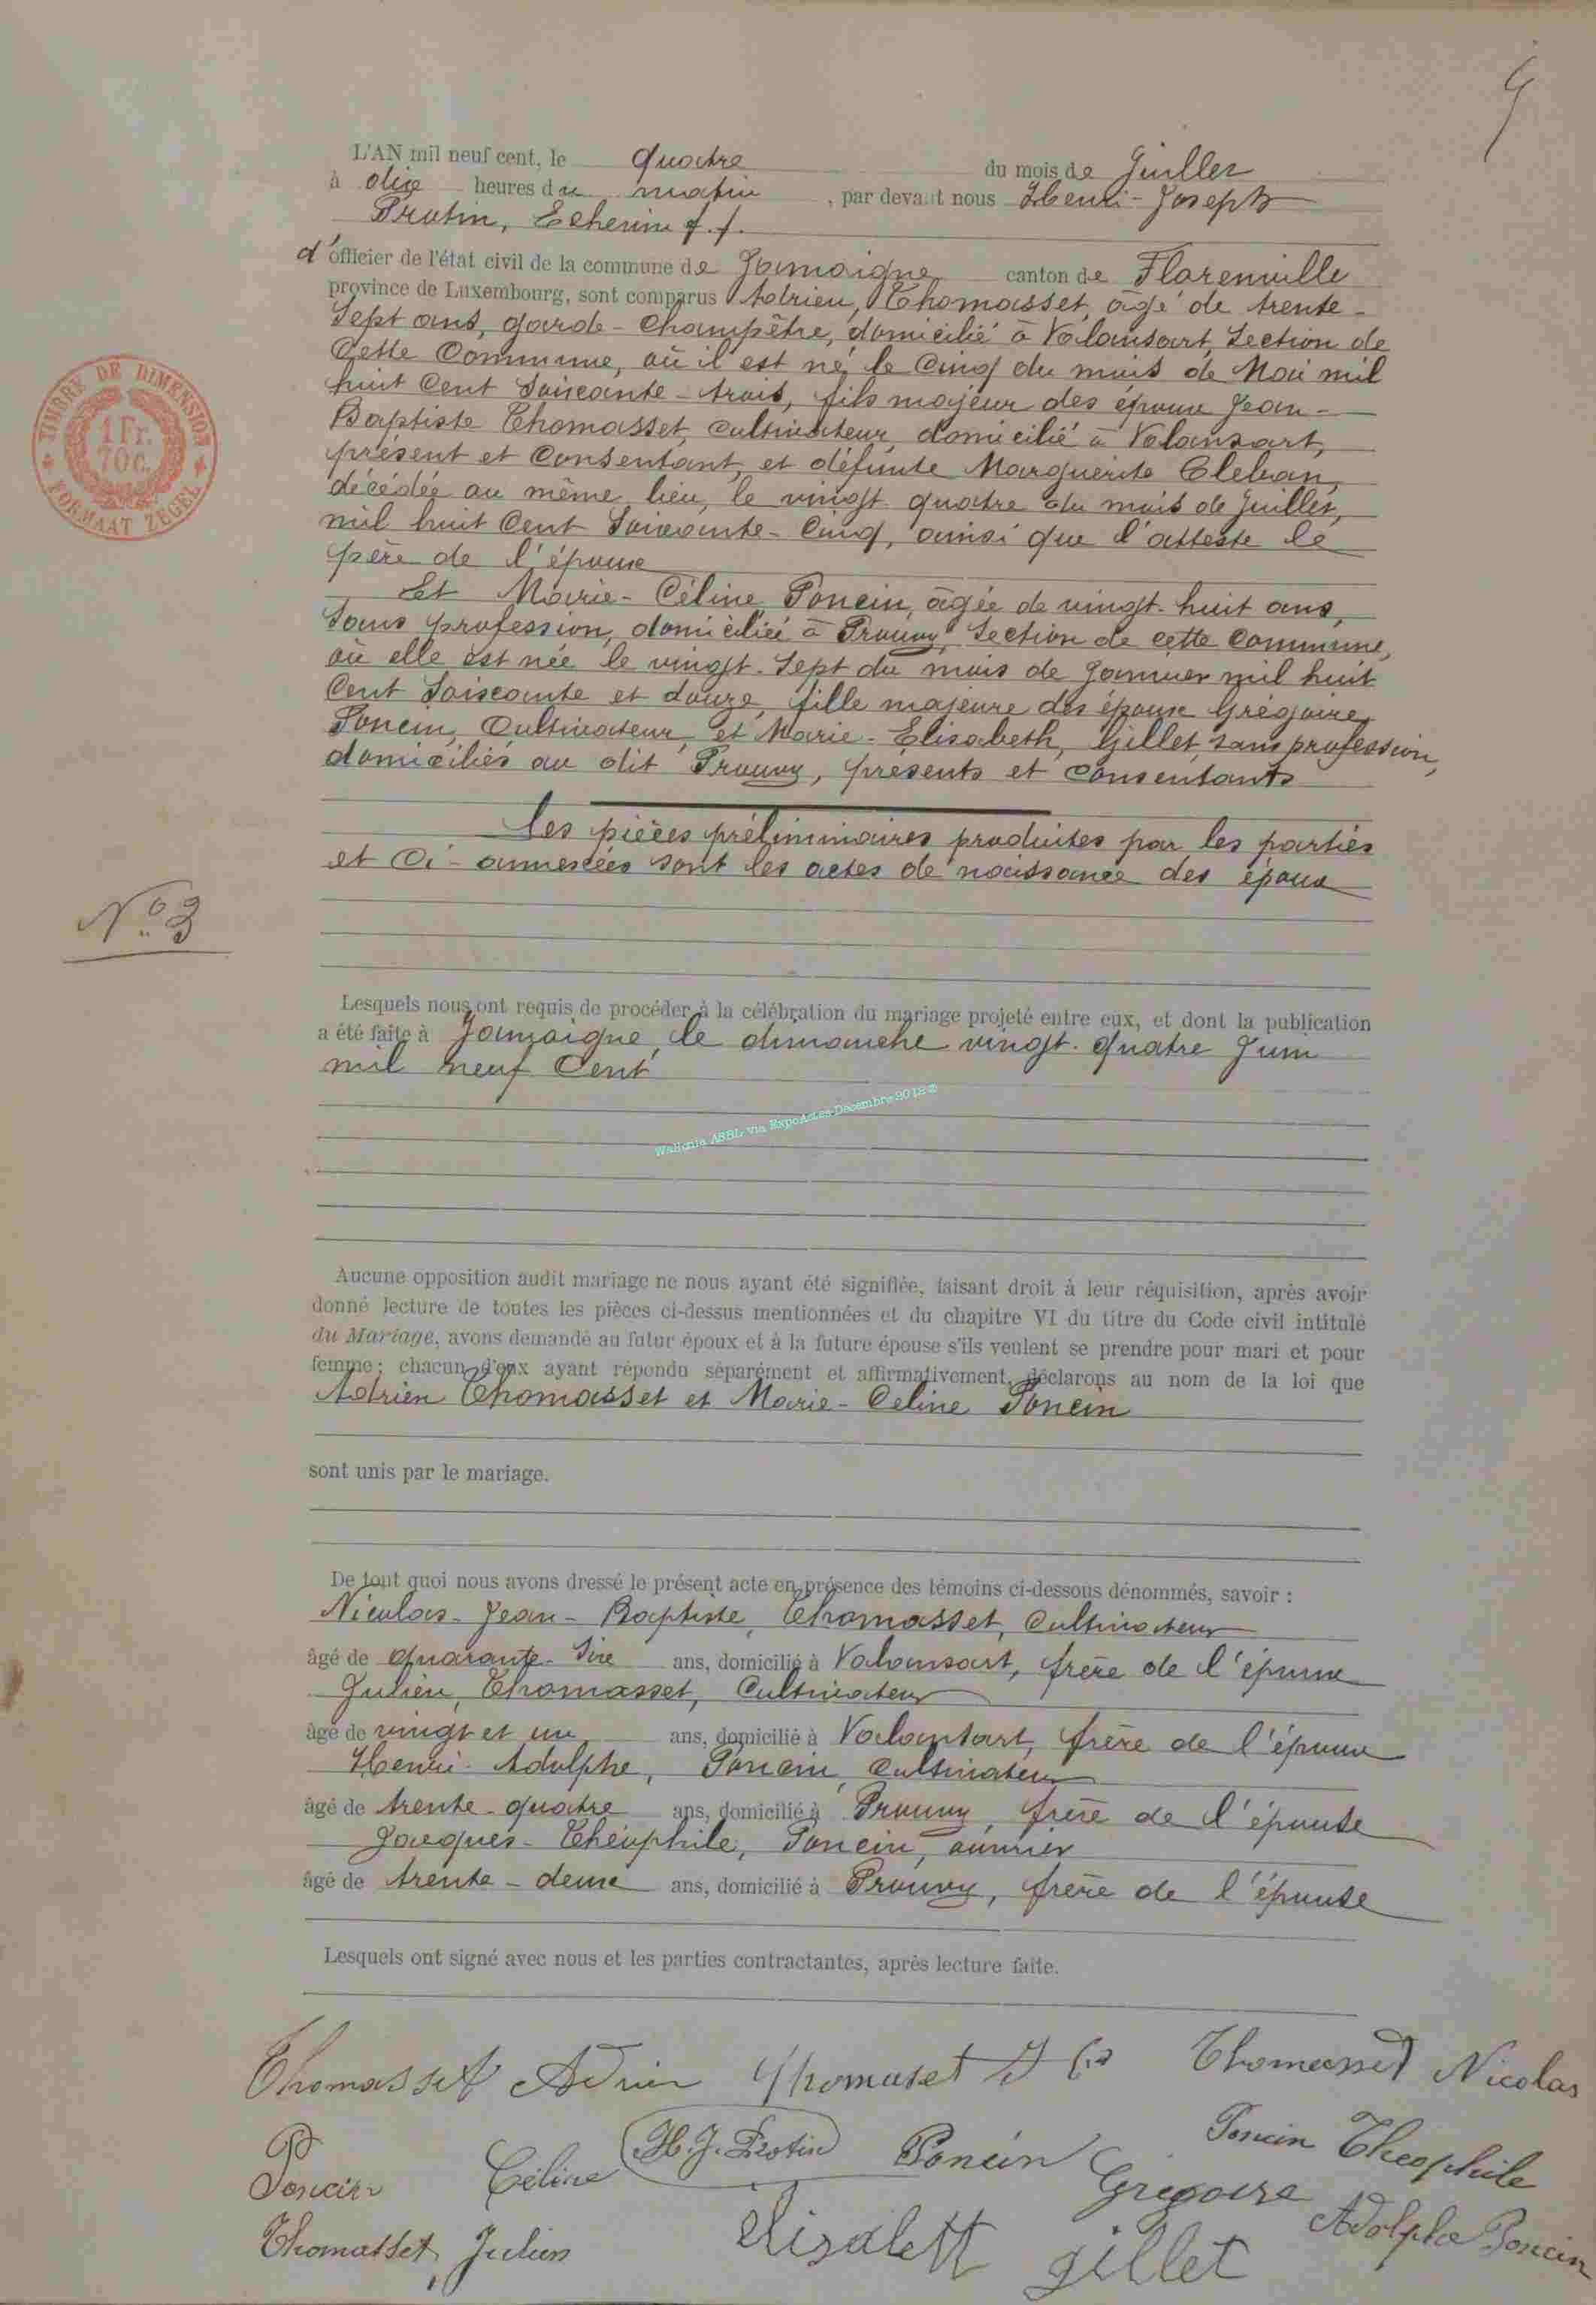 9
L'AN mil neuf cent, le quatre du mois de Juillet
à dix heures du matin, par devant nous Henri-Joseph
Protin, Echevin f.f.
d'officier de l'état civil de la commune de Jamoigne canton de Florenville
province de Luxembourg, sont comparus Adrien, Thomasset, âgé de trente-
sept ans, garde-champêtre, domicilié à Valansart, section de
cette commune, où il est né le cinq du mois de Mai mil
huit cent soixante-trois, fils majeur des époux Jean-
Baptiste Thomasset, cultivateur, domicilié à Valansart,
présent et consentant, et défunte Marguerite
décédée au même lieu, le vingt quatre du mois de Juillet,
mil huit cent soixante-cinq, ainsi que l'atteste le
père de l'époux
Et Marie-Céline Poncin, âgée de vingt-huit ans,
sans profession, domiciliée à Prouvy, section de cette commune,
où elle est née le vingt-sept du mois de Janvier mil huit
cent soixante et douze, fille majeure des époux Grégoire,
Poncin, cultivateur, et Marie-Elisabeth, Gillet, sans profession,
domiciliés au dit Prouvy, présents et consentants
Les pièces préliminaires produites par les parties
et ci-annexées sont les actes de naissance des époux
N° 3
Lesquels nous ont requis de procéder à la célébration du mariage projeté entre eux, et dont la publication
a été faite à Jamoigne, le dimanche vingt-quatre Juin
mil neuf cent
Wallonia ASBL via ExpoActes Décembre 2012 ©
Aucune opposition audit mariage ne nous ayant été signifiée, faisant droit à leur réquisition, après avoir
donné lecture de toutes les pièces ci-dessus mentionnées et du chapitre VI du titre du Code civil intitulé
du Mariage, avons demandé au futur époux et à la future épouse s'ils veulent se prendre pour mari et pour
femme; chacun d'eux ayant répondu séparément et affirmativement, déclarons au nom de la loi que
Adrien Thomasset et Marie-Celine Poncin
sont unis par le mariage.
De tout quoi nous avons dressé le présent acte en présence des témoins ci-dessous dénommés, savoir :
Nicolas-Jean-Baptiste, Thomasset, cultivateur
âgé de quarante-six ans, domicilié à Valansart, frère de l'époux
Julien, Thomasset, Cultivateur
âgé de vingt et un ans, domicilié à Valansart, frère de l'époux
Henri-Adolphe, Poncin, cultivateur
âgé de trente-quatre ans, domicilié à Prouvy, frère de l'épouse
Jacques-Théophile, Poncin, ouvrier
âgé de trente-deux ans, domicilié à Prouvy, frère de l'épouse
Lesquels ont signé avec nous et les parties contractantes, après lecture faite.
Thomasset Adrien Thomaset J Thomasset Nicolas
Poncin Céline H.J. Protin Poncin Grégoire Poncin Théophile
Thomasset, Julien Elisabett Gillet Adolphe Poncin
TIMBRE DE DIMENSION
1 Fr.
70 c.
FORMAAT ZEGEL